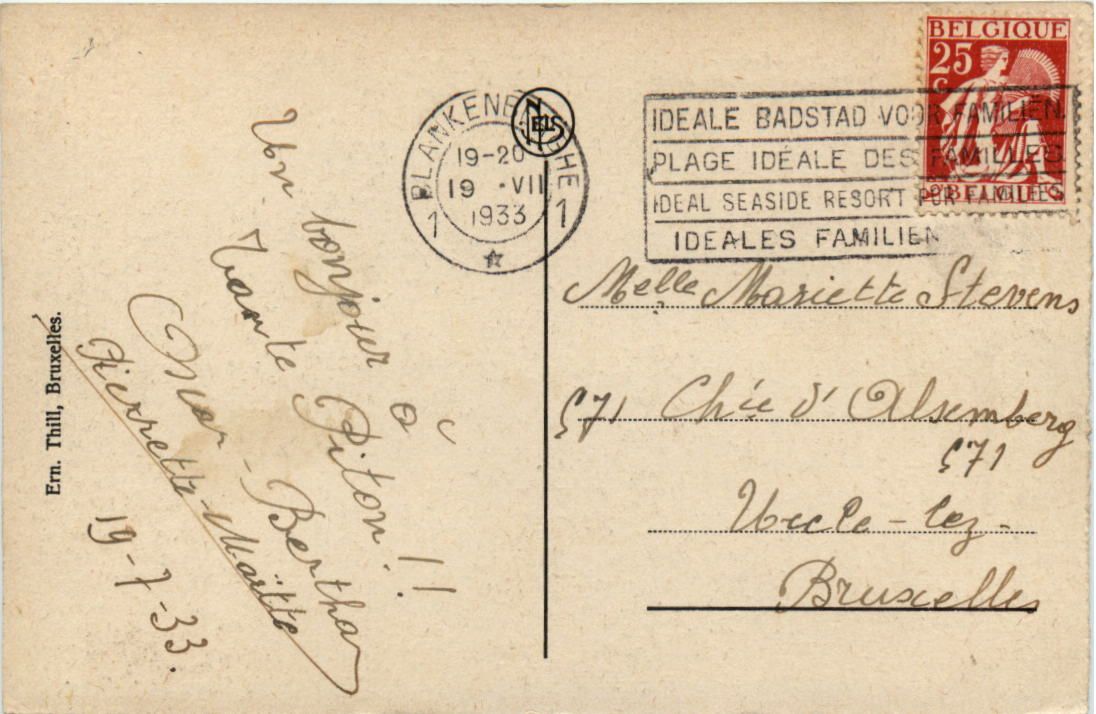 Un bonjour à
Tante Piton !!
Omar - Bertha
Pierrette - Maëtte
19-7-33.
Ern. Thill, Bruxelles.
BLANKENBERGHE
19-20
19 · VII
1933
1 1
NELS
IDEALE BADSTAD VOOR FAMILIËN
PLAGE IDÉALE DES FAMILLES
IDEAL SEASIDE RESORT FOR FAMILIES
IDEALES FAMILIEN
BELGIQUE
25
C
BELGIË
Melle Mariette Stevens
571 Ch'ée d'Alsemberg
571
Uccle - lez -
Bruxelles